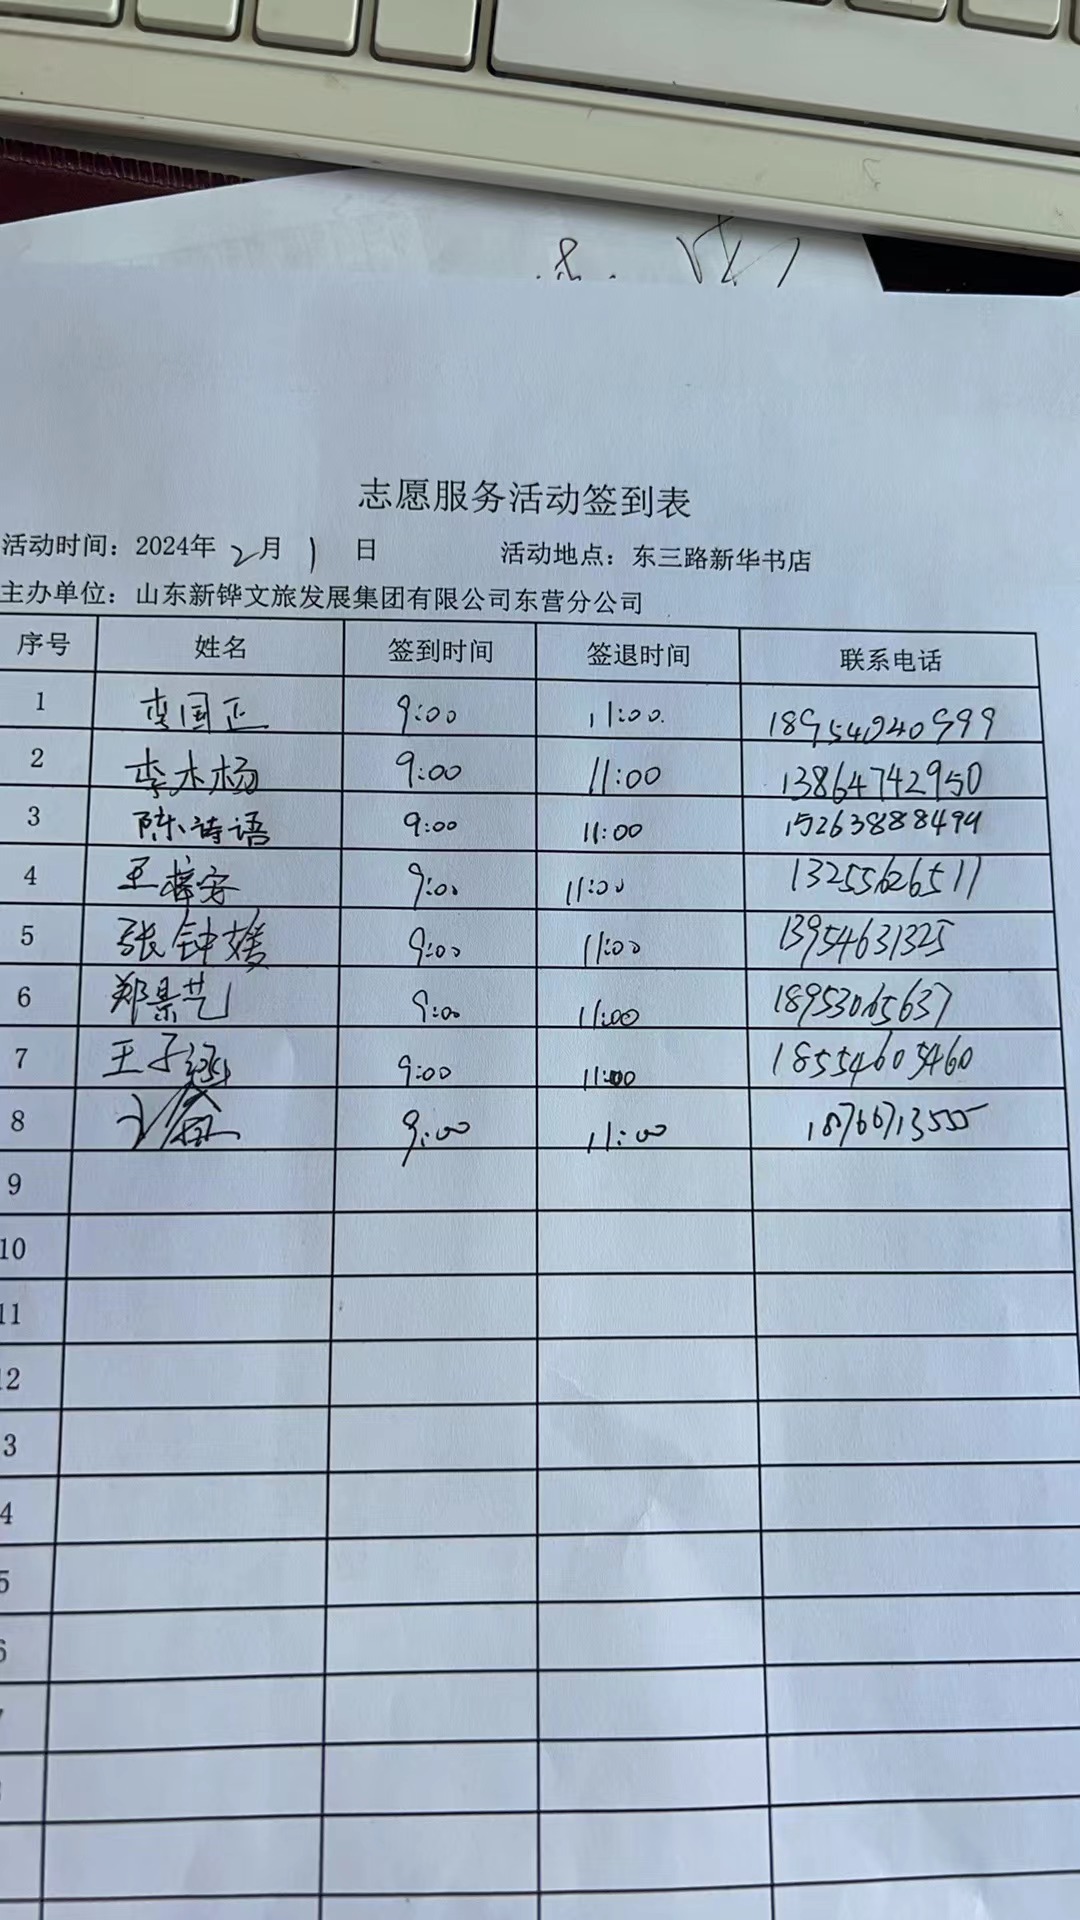 志愿服务活动签到表
活动时间：2024年 2月 1 日 活动地点：东三路新华书店
主办单位：山东新铧文旅发展集团有限公司东营分公司
序号 姓名 签到时间 签退时间 联系电话
1 李国正 9:00 11:00. 18954040999
2 李木杨 9:00 11:00 13864742950
3 陈诗语 9:00 11:00 15263888499
4 王梓安 9:00 11:00 13255626511
5 张钟媛 9:00 11:00 13954631325
6 郑景艺 9:00 11:00 18953065637
7 王子涵 9:00 11:00 18554605460
8 9:00 11:00 18766713555
9
10
11
12
3
4
5
6